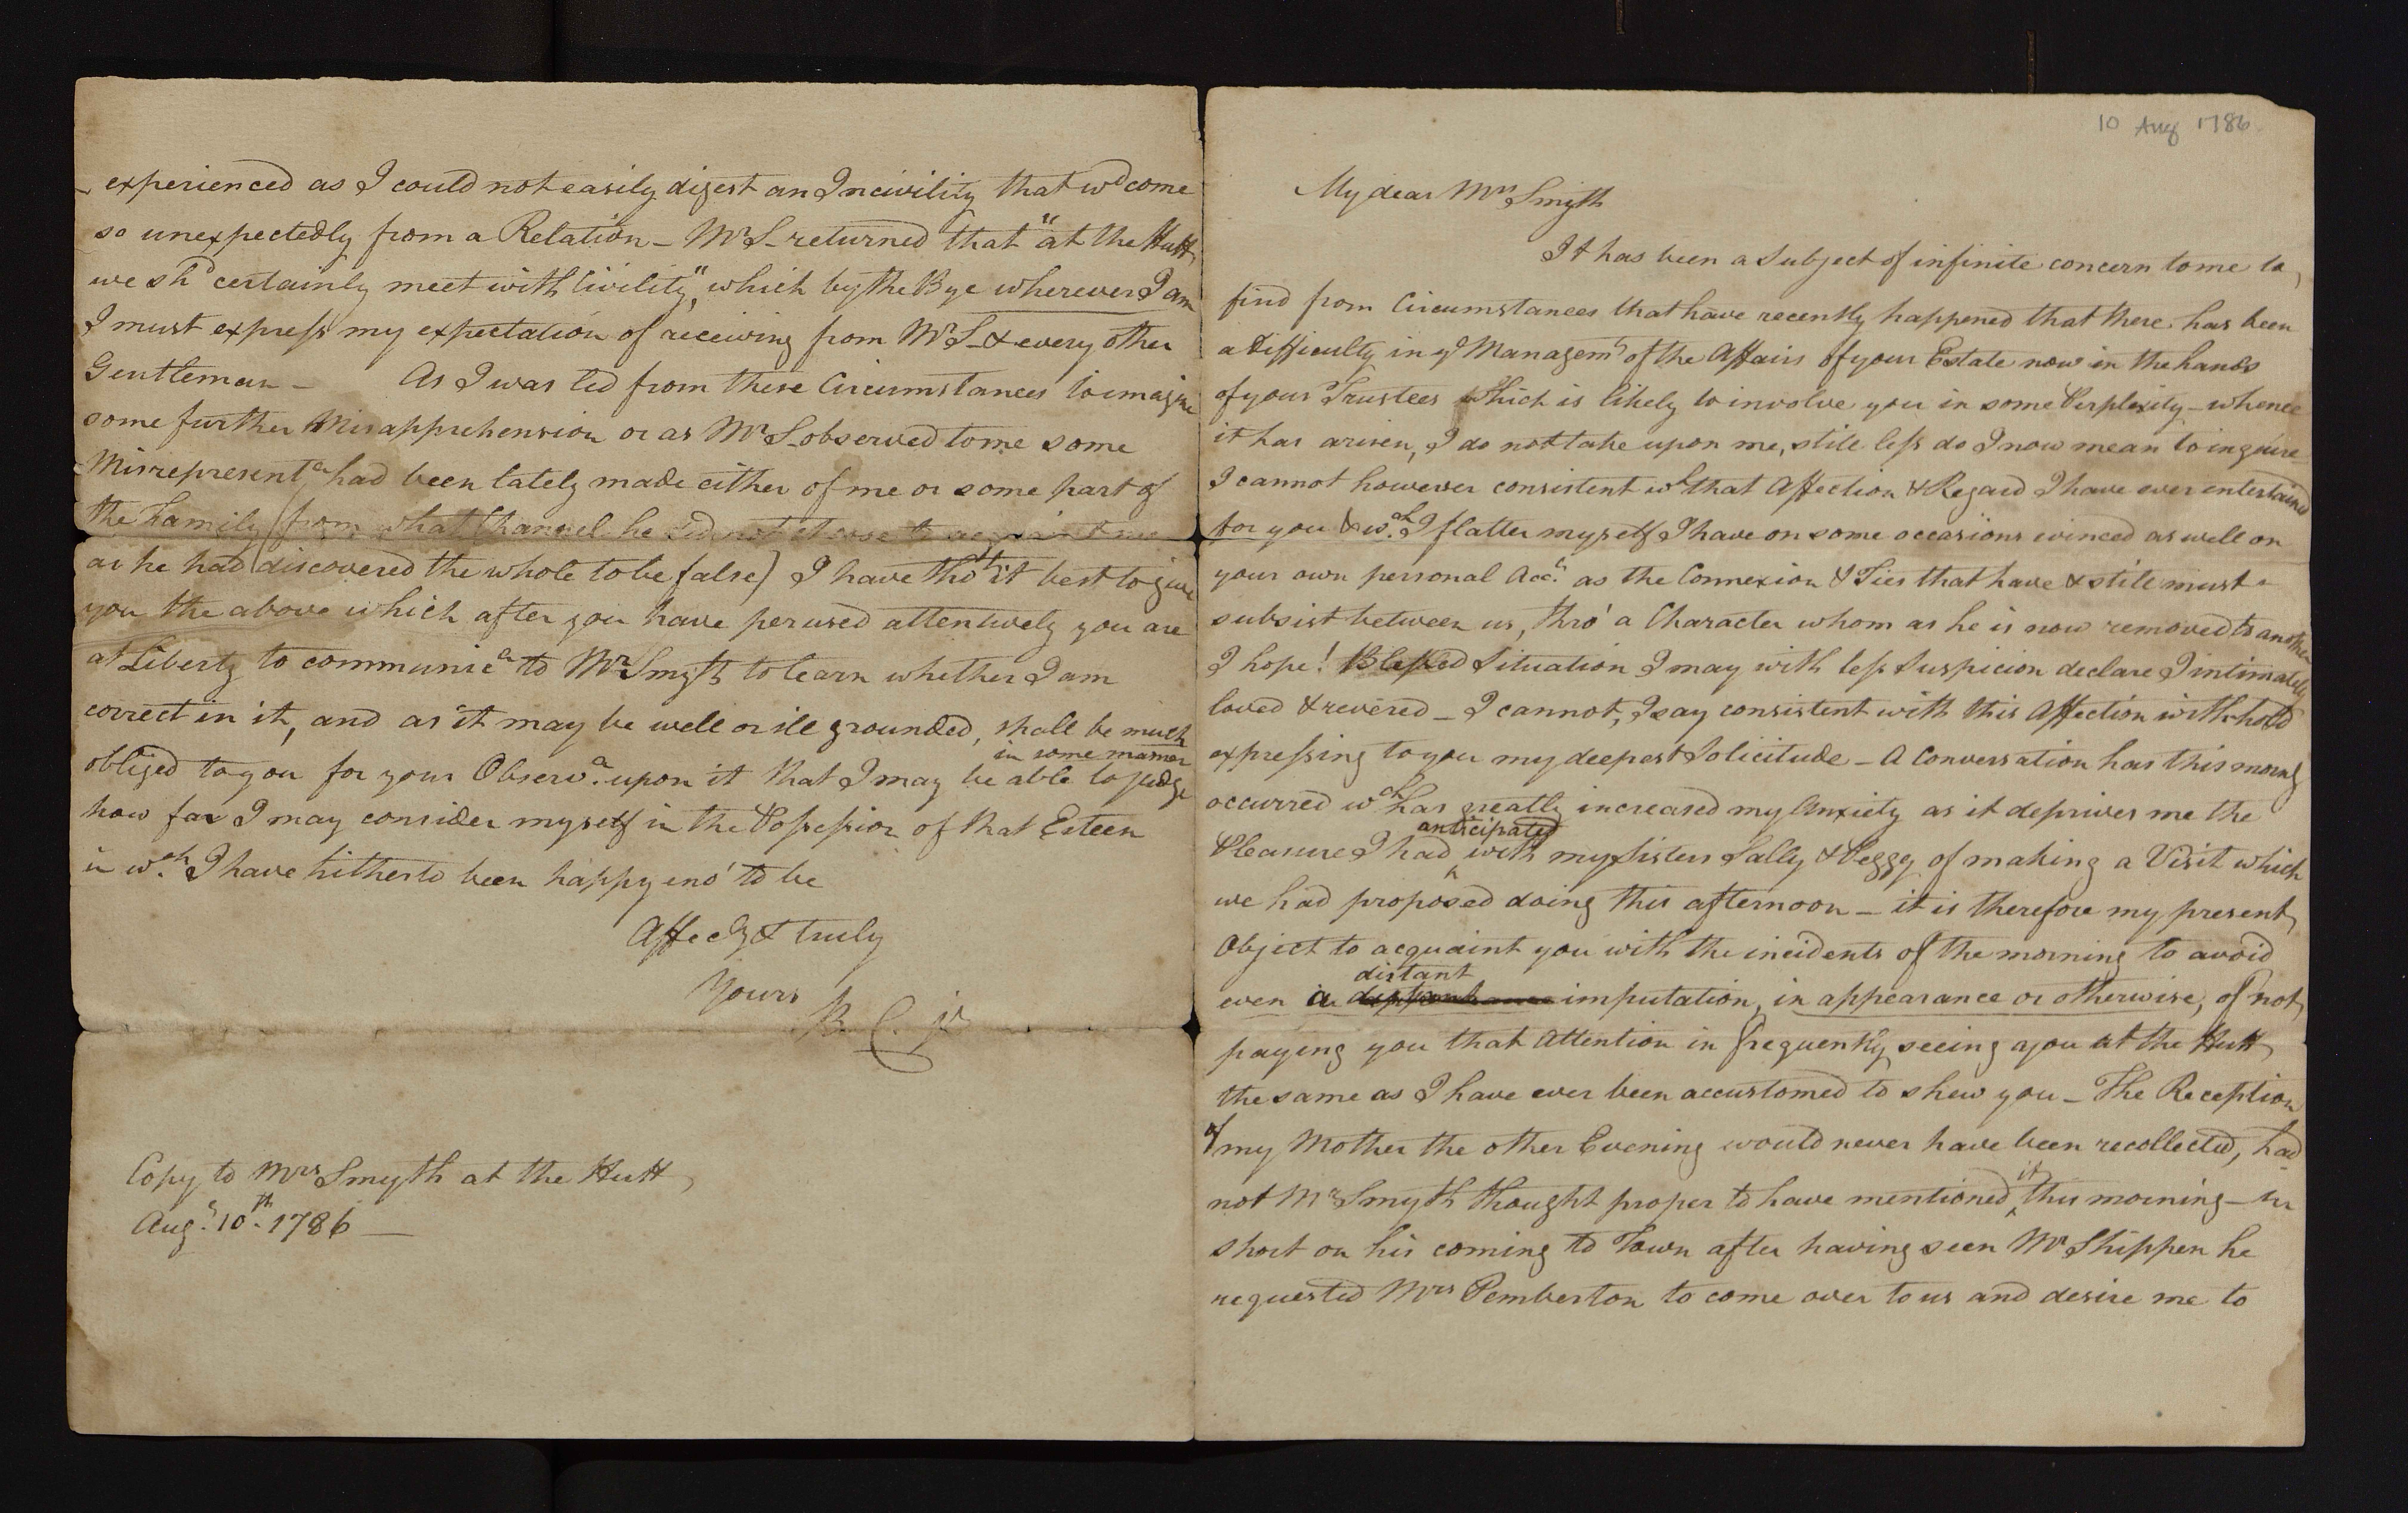 10 Aug 1786
My dear Mrs Smyth
It has been a Subject of infinite concern to me to
find from Circumstances that have recently happened that there has been
a Difficulty in ye Managemt of the Affairs of your Estate now in the hands
of your Trustees which is likely to involve you in some Perplexity - whence
it has arisen, I do not take upon me, still less do I now mean to inquire
I cannot however consistent wh that Affection & Regard I have ever entertained
for you & wch I flatter myself I have on some occasions evinced as well on
your own personal Acct as the Connexion & Ties that have & still must
subsist between us, thro' a Character whom as he is now removed to another
I hope! Blessed Situation I may with less Suspicion declare I intimately
loved & revered - I cannot, I say consistent with this Affection withhold
expressing to you my deepest Solicitude - A Conversation has this morng
occurred wch has greatly increased my Anxiety as it deprives me the
anticipated
Pleasure I had with my Sisters Sally & Peggy of making a Visit which
we had proposed doing this afternoon - it is therefore my present
Object to acquaint you with the incidents of the morning to avoid
distant
even a imputation, in appearance or otherwise, of not
paying you that Attention in frequently seeing you at the Hutt
the same as I have ever been accustomed to shew you - The Reception
of my Mother the other Evening would never have been recollected, had
not Mr Smyth thought proper to have mentioned it this morning - in
short on his coming to Town after having seen Mr Shippen he
requested Mrs Pemberton to come over to us and desire me to
experienced as I could not easily digest an Incivility that wd come
so unexpectedly from a Relation - Mr S - returned that "at the Hutt
we shd certainly meet with Civility", which by the Bye wherever I am
I must express my expectation of receiving from Mr S - & every other
Gentleman - As I was led from these Circumstances to imagine
some further Misapprehension or as Mr S - observed to me some
Misrepresentn had been lately made either of me or some part of
the Family (from what Channel he did not choose to acquaint me
as he had discovered the whole to be false) I have tho't it best to give
you the above which after you have perused attentively you are
at Liberty to communicn to Mr Smyth to learn whether I am
correct in it, and as it may be well or ill grounded, shall be much
in some manner
obliged to you for your Observn upon it that I may be able to judge
how far I may consider myself in the Possession of that Esteem
in wch I have hitherto been happy eno' to be
Affecy & truly
Yours
B C jr
Copy to Mrs Smyth at the Hutt
Augt 10th 1786 -